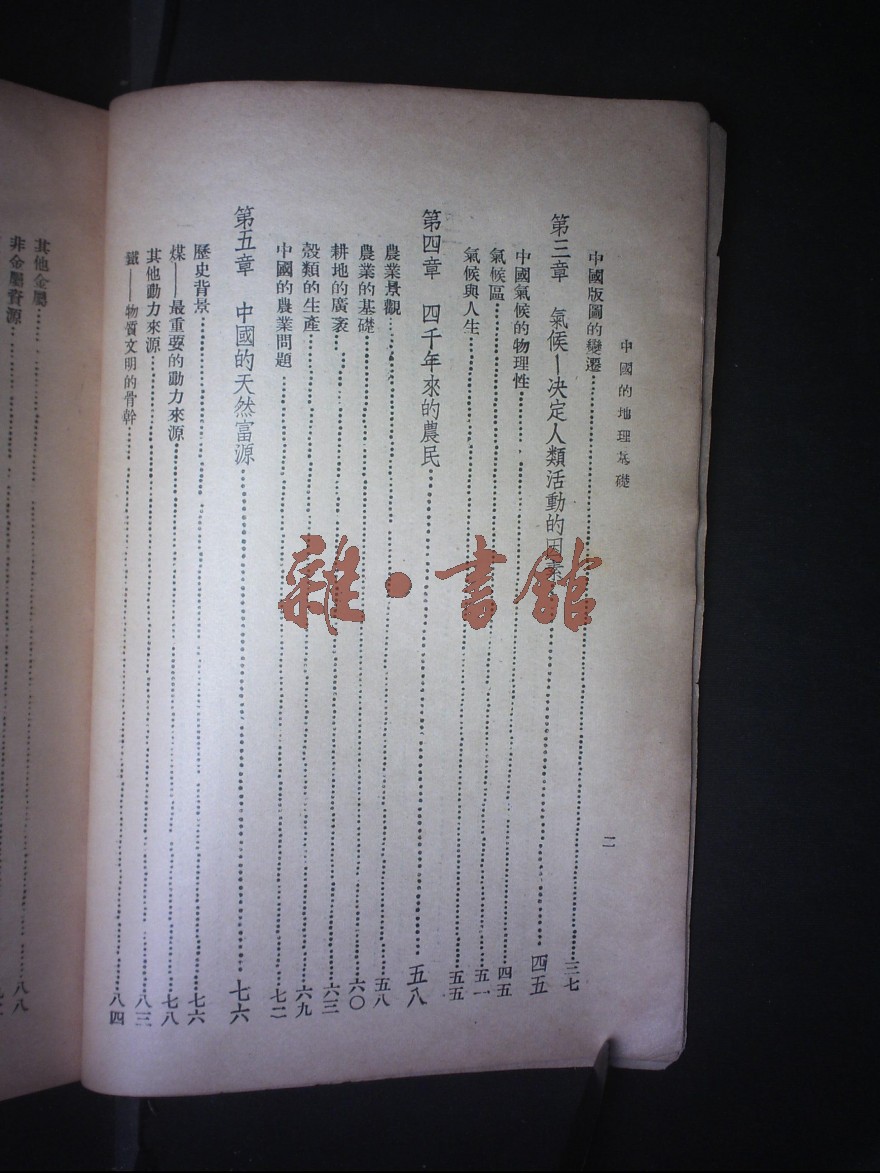 中國的地理基礎
二
中國版圖的變遷……三七
第三章　氣候—決定人類活動的因素……四五
中國氣候的物理性……四五
氣候區……五一
氣候與人生……五五
第四章　四千年來的農民……五八
農業景觀……五八
農業的基礎……六〇
耕地的廣袤……六三
穀類的生產……六九
中國的農業問題……七二
第五章　中國的天然富源……七六
歷史背景……七六
煤——最重要的動力來源……七八
其他動力來源……八三
鐵——物質文明的骨幹……八四
其他金屬……八八
非金屬資源……
雜·書館